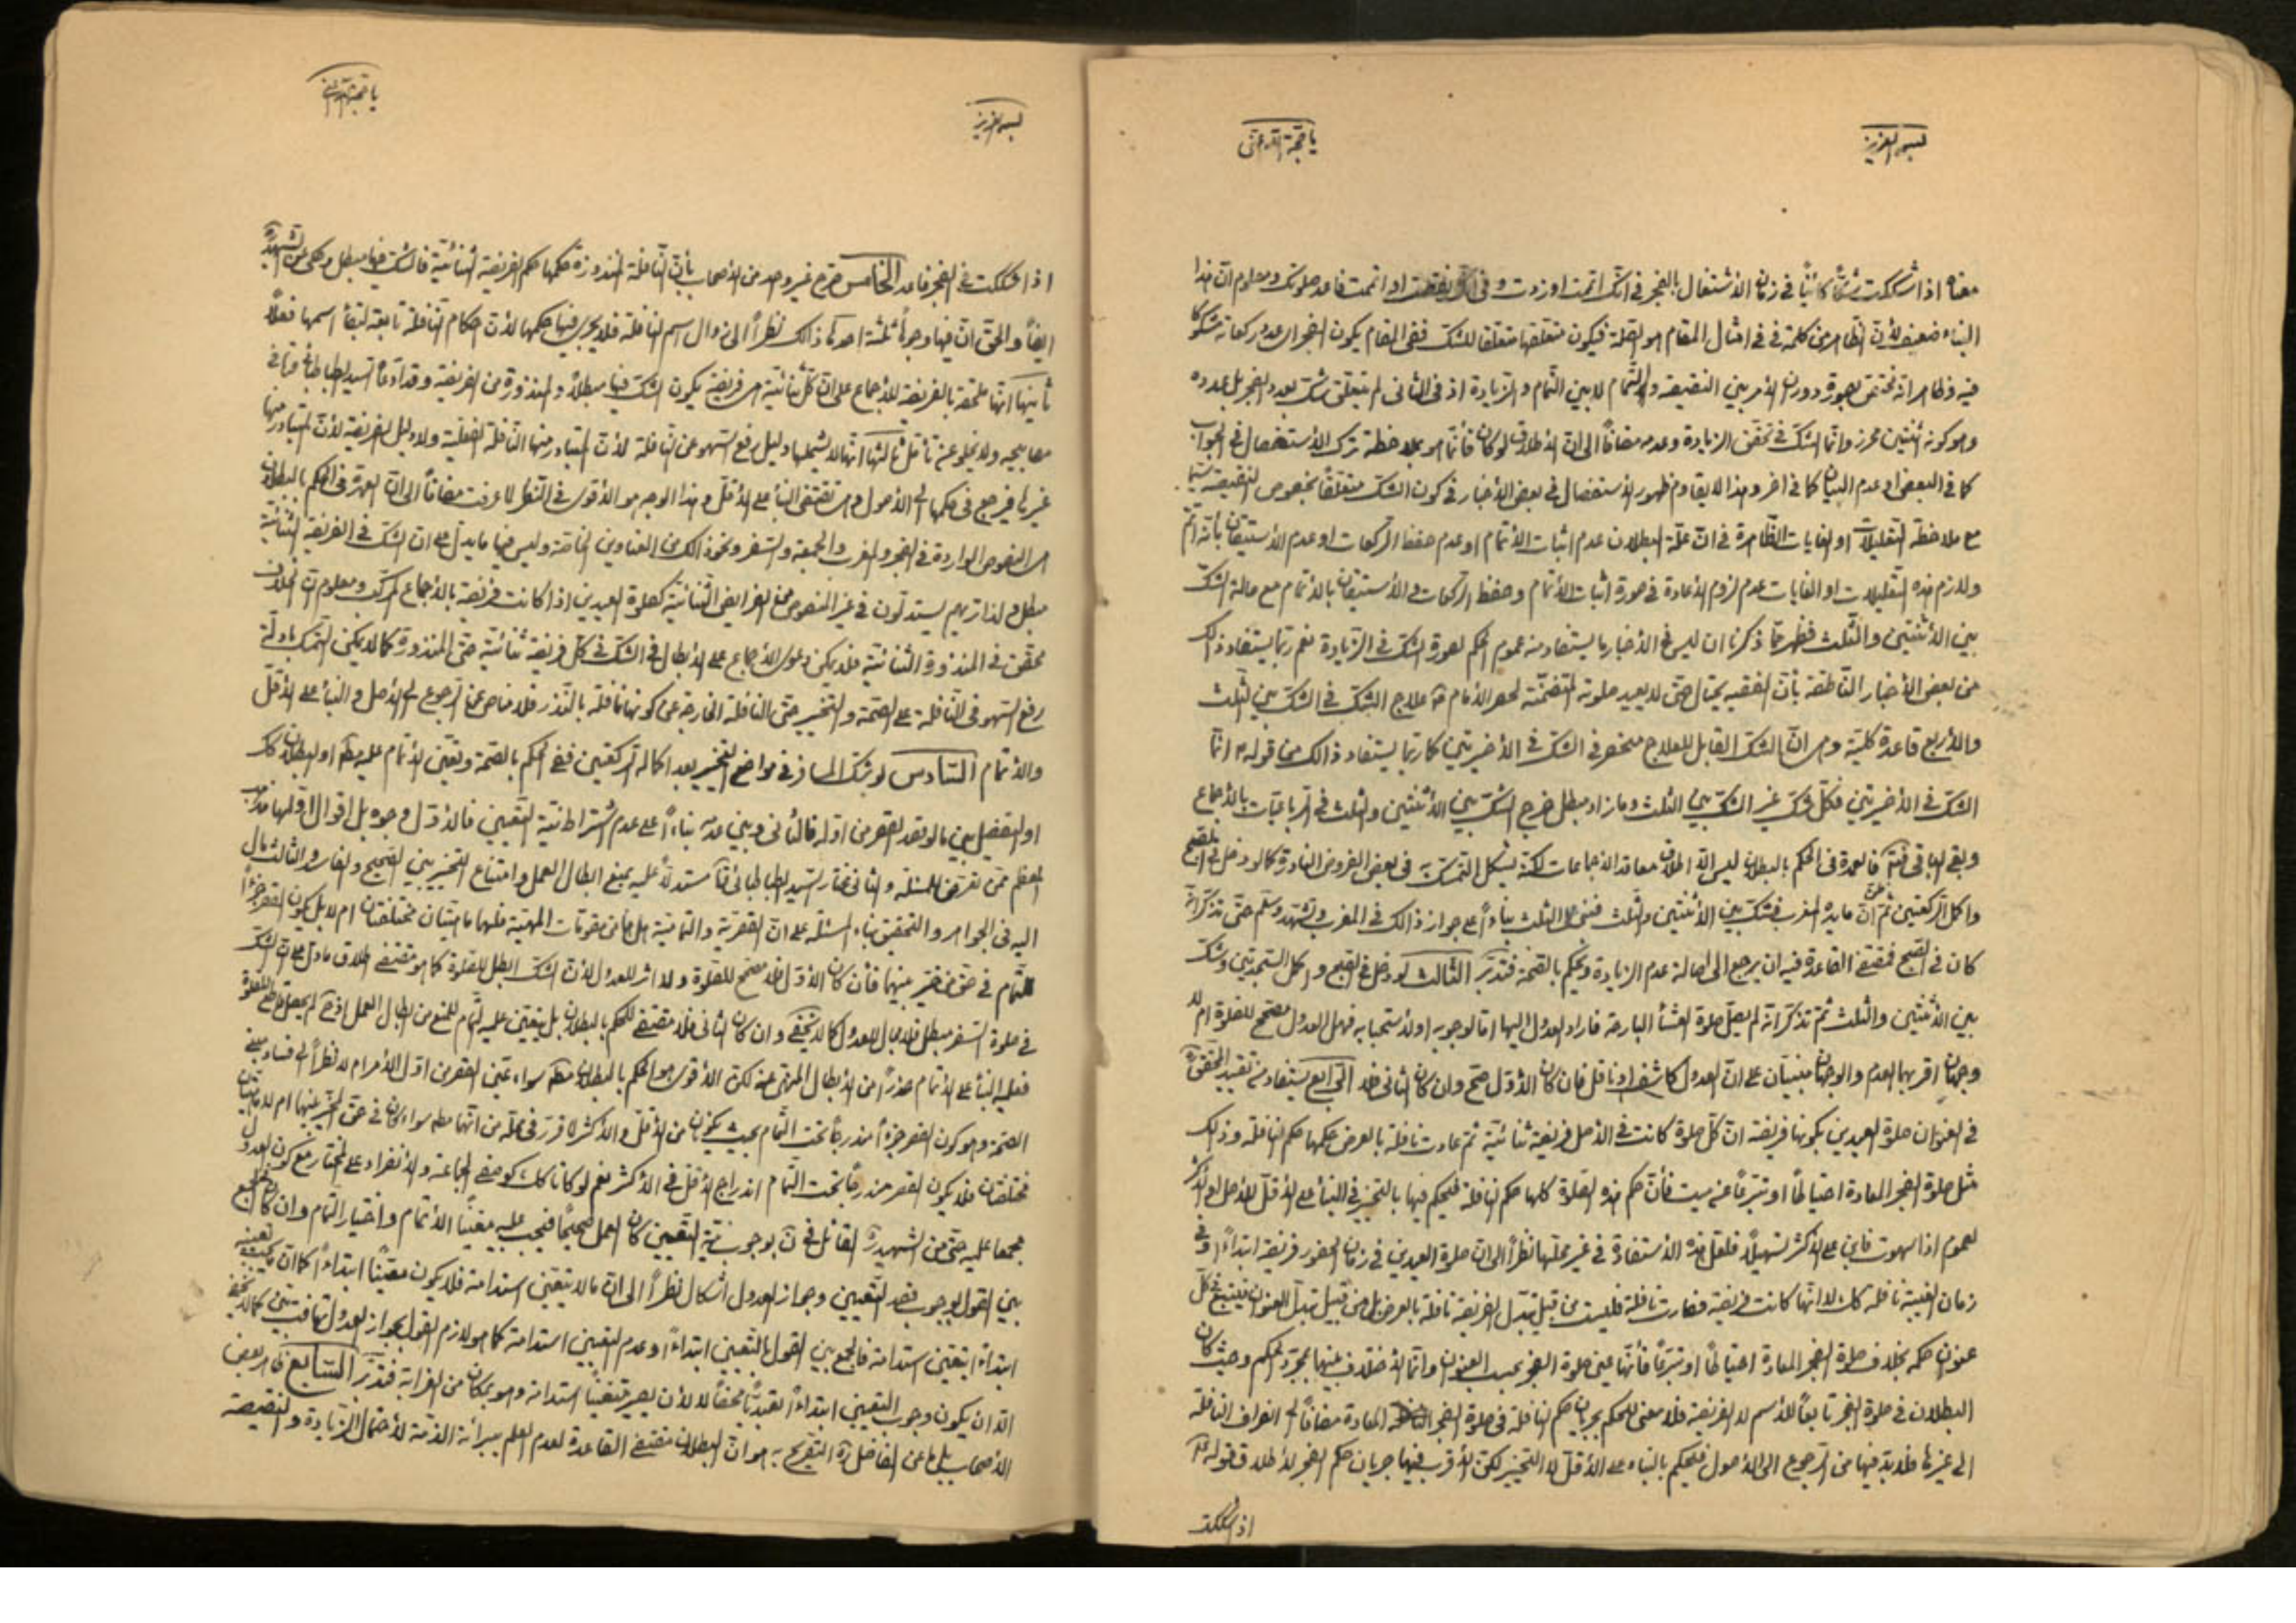 بسمه العزيز
يا حجة الله ادركني
معناه اذا شككت شكًا كائنًا في زمان الاشتغال بالفجر في انك اتممت او زدت و في انك نقصت او اتممت فاعد صلوتك و معلوم ان هذا
البناء ضعيف لان الظاهر من كلمة في في امثال المقام هو الصلة فيكون متعلقها متعلقا للشك ففي المقام يكون الفجر اى عدد ركعاته مشكوكا
فيه و ظاهر انه مختص بصورة دوران الامر بين النقيصه و التمام لا بين التمام و الزيادة اذ في الثاني لم يتعلق شك بعدد الفجر بل بعدده
و هو كونه اثنتين محرز و انما الشك في تحقق الزيادة و عدمه مضافًا الى ان الاطلاق لو كان فانما هو بملاحظة ترك الاستفصال في الجواب
كما في البعض او عدم البيان كما في اخر و هذا لا يقاوم ظهور الاستفصال في بعض الاخبار في كون الشك متعلقًا بخصوص النقيصة سيما
مع ملاحظة التعليلات او الغايات الظاهرة في ان علة البطلان عدم اثبات الاتمام او عدم حفظ الركعات او عدم الاستيقان بانه اتم
و لازم هذه التعليلات او الغايات عدم لزوم الاعادة في صورة اثبات الاتمام و حفظ الركعات و الاستيقان بالاتمام مع حالة الشك
بين الاثنتين و الثلث فظهر مما ذكرنا ان ليس في الاخبار ما يستفاد منه عموم الحكم لصورة الشك في الزيادة نعم ربما يستفاد ذلك
من بعض الاخبار الناطقة بأن الفقيه يحتال حتى لا يعيد صلوته المتضمنة لحصر الامام علاج الشك في الشك بين الثلث
و الاربع قاعدة كلية و هي ان الشك القابل للعلاج منحصر في الشك في الاخيرتين كما ربما يستفاد ذالك من قوله انما
الشك في الاخيرتين فكل شك غير الشك بين الثلث و ما زاد مبطل خرج الشك بين الاثنتين و الثلث في الرباعيات بالاجماع
و بقى الباقي فالعمدة في الحكم بالبطلان ليس الا اطلاق معاقد الاجماعات لكنه يشكل التمسك به في بعض الفروض النادرة كما لو دخل في الصبح
و اكمل الركعتين ثم ان المغرب فشك بين الاثنتين و الثلث فبنى على الثلث بناءً على جواز ذالك في المغرب و تشهد و سلم حتى تذكر انه
كان في الصبح فمقتضى القاعدة فيه ان يرجع الى اصالة عدم الزيادة و يحكم بالصحة فتدبر الثالث لو دخل في الصبح و اكمل السجدتين و شك
بين الاثنتين و الثلث ثم تذكر انه لم يصل صلوة العشأ البارحة فاراد العدول اليها اما لوجوبه او لاستحبابه فهل العدول مصحح للصلوة ام لا
وجهان اقربهما العدم و الوجهان مبنيان على ان العدول كاشف او ناقل فان كان الاول صح و ان كان الثاني فلا الرابع يستفاد من تقييد المحقق
في العنوان صلوة العيدين بكونها فريضة ان كل صلوة كانت في الاصل فريضة ثنائية ثم عادت نافلة بالعرض حكمها حكم النافلة و ذالك
مثل صلوة الفجر المعادة احتياطًا او تبرعًا عن ميت فأن حكم هذه الصلوة كلها حكم النافلة فيحكم فيها بالتخيير في البنأ على الاقل للاصل او الاكثر
لعموم اذا سهوت فابن على الاكثر تسهيلًا فلعل هذه الاستفادة في غير محلها نظرًا الى ان صلوة العيدين في زمان الحضور فريضة ابتداءً و في
زمان الغيبة نافلة كك لا انها كانت فريضة فصارت نافلة فليست من قبيل تبدل الفريضة نافلة بالعرض بل من قبيل تبدل العنوان فيتبع في كل
عنوان حكمه بخلاف صلوة الفجر المعادة احتياطًا او تبرعًا فأنها عين صلوة الفجر بحسب العنوان و انما الاختلاف بينهما بمجرد الحكم و حيث كان
البطلان في صلوة الفجر تابعًا للاسم لا الفريضة فلا معنى للحكم بجريان حكم النافلة في صلوة الفجر المعادة مضافًا الى انصراف النافلة
الى غيرها فلا بد فيها من الرجوع الى الاصول فيحكم بالبناء على الاقل لا التخيير لكن الاقرب فيها جريان حكم الفجر لاطلاق قوله
اذا شككت
بسمه العزيز
يا حجة الله ادركني
اذا شككت في الفجر فاعد الخامس صرح غير واحد من الاصحاب بأن النافلة المنذورة حكمها حكم الفريضة الثنائية فالشك فيها مبطل و حكى عن الشهيد
ايضًا و الحق ان فيها وجوهًا ثلثة احدها ذالك نظرًا الى زوال اسم النافلة فلا يجرى فيها حكمها لان احكام النافلة تابعة لبقأ اسمها فعلًا
ثانيها انها ملحقة بالفريضة للاجماع على ان كل ثنائية هي فريضة يكون الشك فيها مبطلًا و المنذورة من الفريضة و قد ادعاه السيد الطباطبائي في
مصابيحه و لا يخلو عن تأمل ثالثها انها لا يشملها دليل رفع السهو عن النافلة لان المتبادر منها النافلة الفعلية و لا دليل الفريضة لان المتبادر منها
غيرها فيرجع في حكمها الى الاصول و هي تقتضى البنأ على الاقل و هذا الوجه هو الاقوى في النظر لما عرفت مضافًا الى ان العمدة في الحكم بالبطلان
هي النصوص الواردة في الفجر و المغرب و الجمعة و السفر و نحو ذالك من العناوين الخاصة و ليس فيها ما يدل على ان الشك في الفريضة الثنائية
مبطل و لذا تريهم يستدلون في غير المنصوص من الفرايض الثنائية كصلوة العيدين اذا كانت فريضة بالاجماع المركب و معلوم ان الخلاف
محقق في المنذورة الثنائية فلا يمكن دعوى الاجماع على الابطال في الشك في كل فريضة ثنائية حتى المنذورة كما لا يمكن التمسك بادلة
رفع السهو في النافلة على الصحة و التخيير حتى النافلة الخارجة عن كونها نافلة بالنذر فلا مناص من الرجوع الى الاصل و البنأ على الاقل
و الاتمام السادس لو شك المسافر في مواضع التخيير بعد اكمال الركعتين ففي الحكم بالصحة و تعين الاتمام عليه مطلقا او البطلان كك
او التفصيل بين ما لو قصد القصر من اوله فالثاني و بين عدمه بناءً على عدم اشتراط نية التعيين فالاول وجوه بل اقوال
المعظم ممن تعرض للمسئلة و الثاني مختار السيد الطباطبائي مستدلًا عليه بمنع ابطال العمل و امتناع التخيير بين الصحيح و الفاسد و الثالث مال
اليه في الجواهر و التحقيق بناء المسئلة على ان القصرية و التمامية هل هما من مقومات المهية فلها ماهيتان مختلفتان ام لا بل يكون القصر جزءًا
للتمام في حق من خير بينهما فأن كان الاول فلا مصحح للصلوة و لا اثر للعدول لان الشك ابطل الصلوة كما هو مقتضى اطلاق ما دل على ان الشك
في صلوة السفر مبطل فلا مجال للعدول كما لا يخفى و ان كان الثاني فلا مقتضى للحكم بالبطلان بل يتعين عليه التمام للمنع من ابطال العمل
فعليه البنأ على الاتمام حذرًا من الابطال المنهى عنه لكن الاقوى هو الحكم بالبطلان مطلقا سواء عين القصر من اول الامر ام لا نظرًا الى فساد مبنى
الصحة و هو كون القصر جزءًا مندرجًا تحت التمام بحيث يكونان من الاقل و الاكثر لما قرر في محله من انهما
مختلفتان فلا يكون القصر مندرجًا تحت التمام اندراج الاقل في الاكثر نعم لو كانا كك كوصفى الجماعة و الانفراد على المختار مع كون العدول
مجمعا عليه حتى من الشهيد القائل في بوجوب نية التعيين كان العمل صحيحًا فيجب عليه معينًا الاتمام و اختيار التمام و ان كان في الجمع
بين القول بوجوب قصد التعيين و جواز العدول اشكال نظرًا الى ان ما لا يتعين استدامة فلا يكون معينًا ابتداءً كما ان
ابتداءً يتعين استدامة فالجمع بين القول بالتعيين ابتداءً و عدم التعيين استدامة كما هو لازم القول بجواز العدول تهافت بين كما لا يخفى
الا ان يكون وجوب التعيين ابتداءً تعبديًا محضًا لا لان يصير متعينًا استدامة و هو بمكان من الغرابة فتدبر السابع
الاصحاب بل عن الفاضل التصريح به هو ان البطلان مقتضى القاعدة لعدم العلم ببرائة الذمة لاحتمال الزيادة و النقيصة